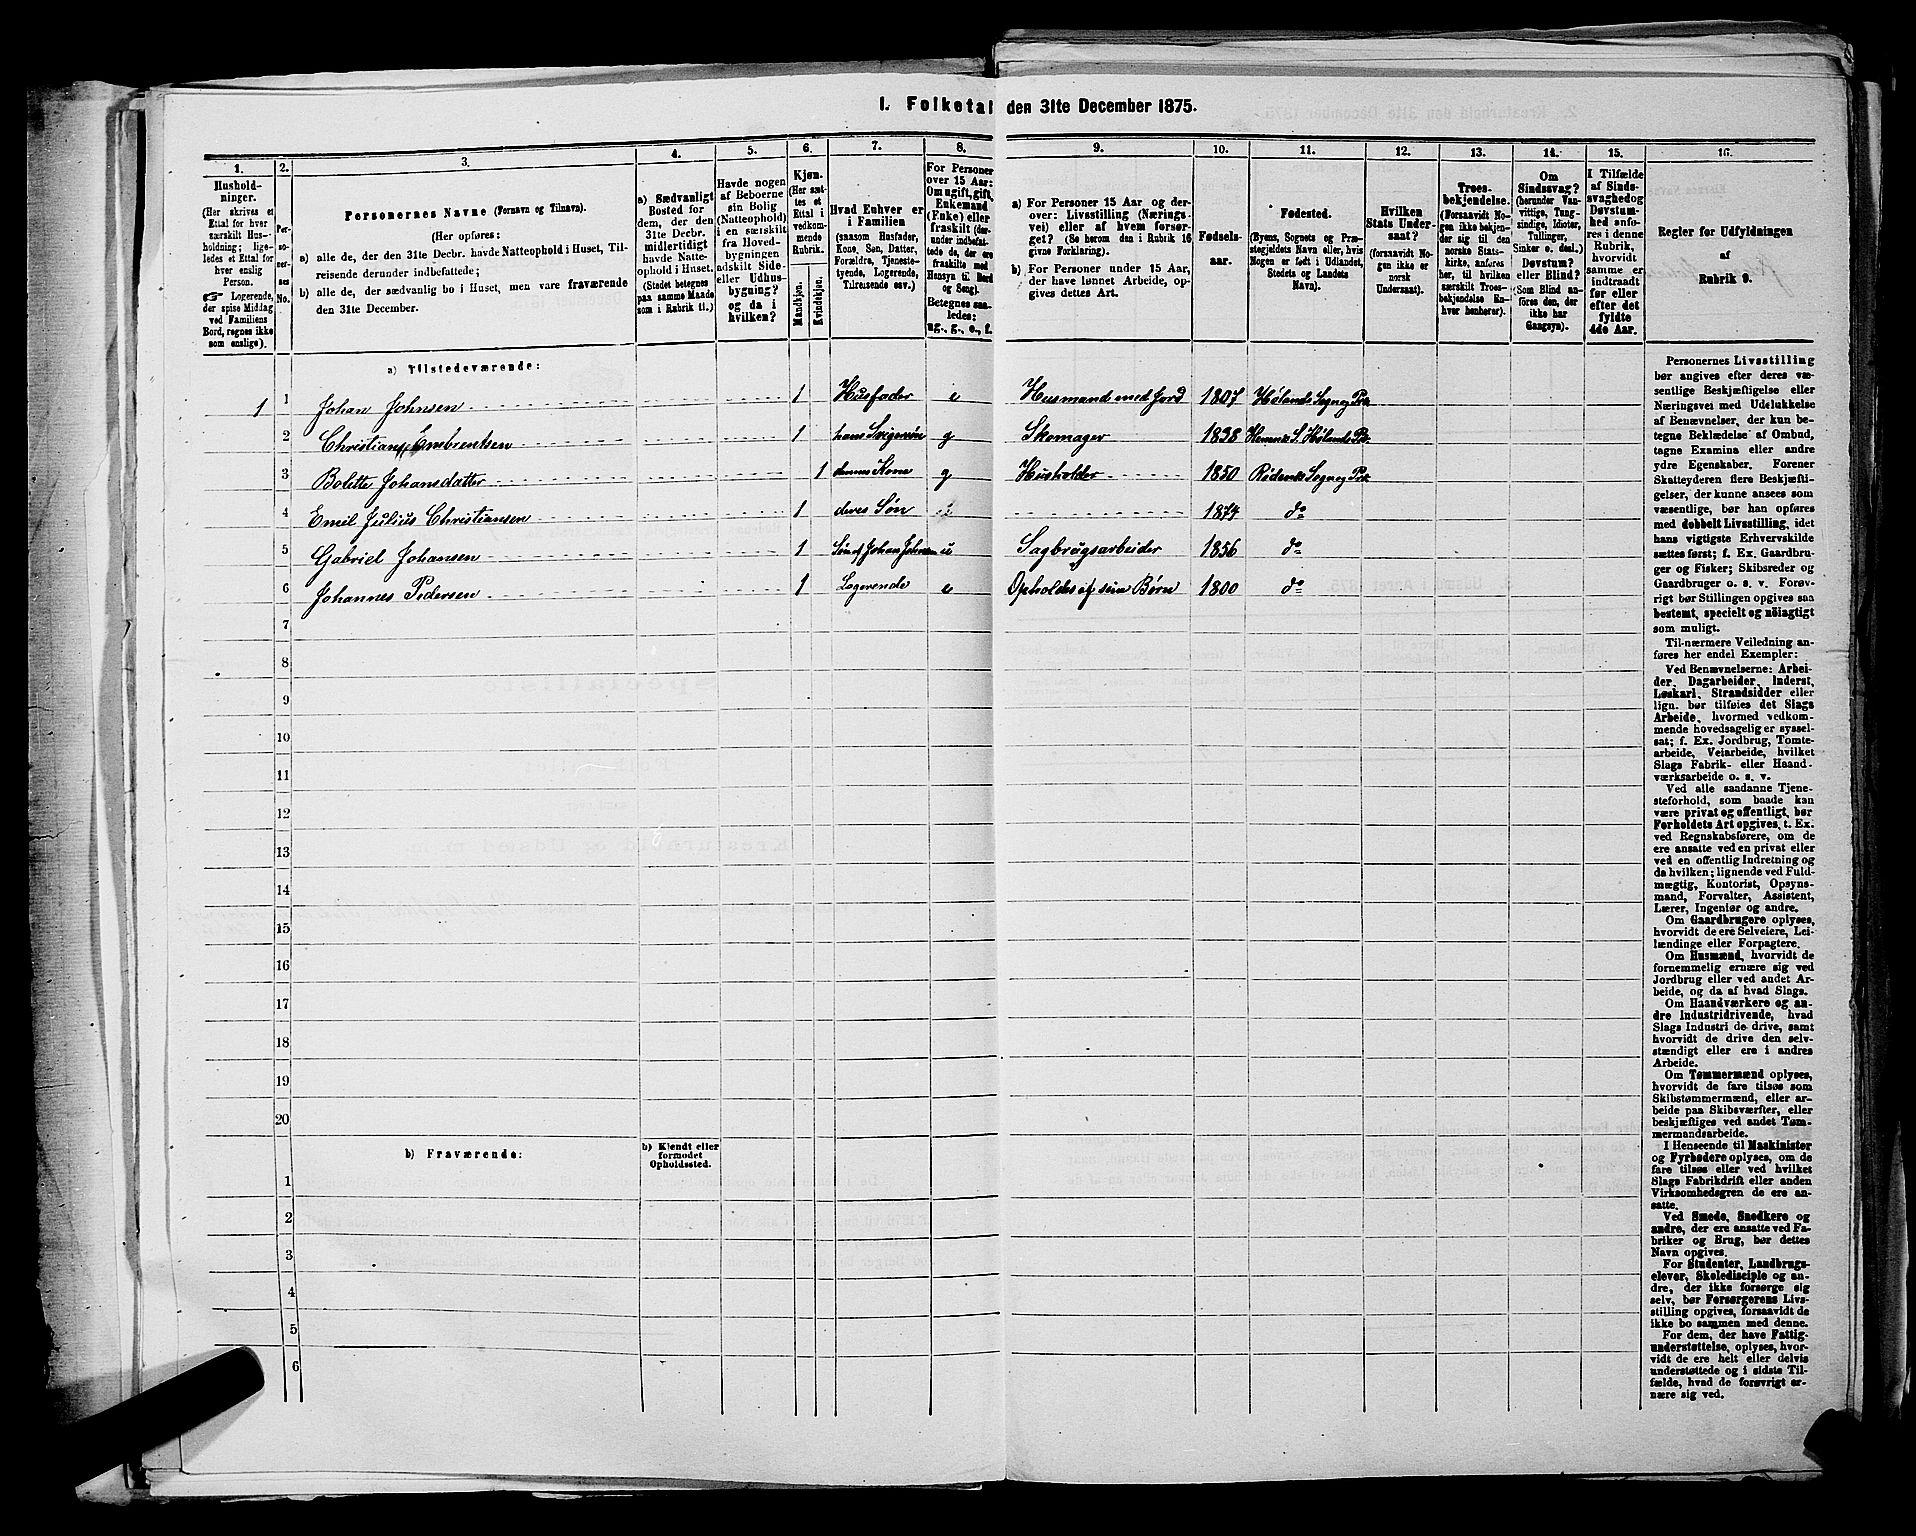 1. Folketal den 31te December 1875.
1. 2. 3. 4. 5. 6. 7. 8. 9. 10. 11. 12. 13. 14. 15. 16.
Hushold-
ninger.
(Her skrives et
Ettal for hver
særskilt Hus-
holdning; lige-
ledes et Ettal
for hver
enslig
Person.
☞ Logerende,
der spise Middag
ved Familiens
Bord, regnes ikke
som enslige).
Per-
so-
ner-
nes
No.
Personernes Navne (Fornavn og Tilnavn).
(Her opføres:
a) alle de, der den 31te Decbr. havde Natteophold i Huset, Til-
reisende derunder indbefattede;
b) alle de, der sædvanlig bo i Huset, men vare fraværende
den 31te December.
a) Sædvanligt
Bosted for
dem, der den
31te Decbr.
midlertidigt
havde Natte-
ophold i Huset.
(Stedet betegnes
paa samme Maade
som i Rubrik 11.)
Havde nogen
af Beboerne
sin Bolig
(Natteophold)
i en særskilt
fra Hoved-
bygningen
adskilt Side-
eller Udhus-
bygning?
og da i
hvilken?
Kjøn.
(Her sæt-
tes et
Ettal i
vedkom-
mende
Rubrik.
Mandkjøn.
Kvindekjøn.
Hvad Enhver er
i Familien
(saasom Husfader,
Kone, Søn, Datter,
Forældre, Tjeneste-
tyende, Logerende,
Tilreisende osv.)
For Personer
over 15 Aar:
Om ugift, gift,
Enkemand
(Enke) eller
fraskilt (der-
under indbefat-
tede de, der ere
fraskilte med
Hensyn til Bord
og Seng).
Betegnes saa-
ledes:
ug., g., e., f.
a) For Personer 15 Aar og der-
over: Livsstilling (Nærings-
vei) eller af hvem forsør-
get? (Se herom den i Rubrik 16
givne Forklaring).
b) For Personer under 15 Aar,
der have lønnet Arbeide, op-
gives dettes Art.
Fødsels-
aar.
Fødested.
(Byens, Sognets og Præ-
stegjeldets Navn eller, hvis
Nogen er født i Udlandet,
Stedets og Landets
Navn).
Hvilken
Stats Under-
saat?
(forsaavidt No-
gen ikke er
norsk
Undersaat).
Troes-
bekjendelse.
(Forsaavidt No-
gen ikke bekjen-
der sig til den
norske Stats-
kirke, anføres
her, til hvilken
særskilt Troes-
bekjendelse En-
hver henhører).
Om
Sindssvag?
(herunder Van-
vittige, Tung-
sindige, Idioter,
Tullinger,
Sinker o. desl.)
Døvstum?
eller Blind?
(Som Blind an-
føres den, der
ikke har
Gangsyn).
I Tilfælde
af Sinds-
svaghed og
Døvstum-
hed anfø-
res i denne
Rubrik,
hvorvidt
samme er
indtraadt
før eller
efter det
fyldte
4de Aar.
Regler for Udfyldningen
af
Rubrik 9.
a) Tilstedeværende:
1 1 Johan Johnsen 1 Husfader e Husmand med Jord 1807 Hølands Sogn og Pr
2 Christian Embrentsen 1 hans Svigersøn g Skomager 1838 Hemnæs S. Hølands Pr.
3 Bolette Johansdatter 1 dennes Kone g Husholder 1850 Rødenes Sogn og Pr
4 Emil Julius Christiansen 1 deres Søn 1874 do
5 Gabriel Johansen 1 Søn af Johan Johnsen u Sagbrugsarbeider 1856 do
6 Johannes Pedersen 1 Logerende e Opholdes af sine Børn 1800 do
7
8
9
10
11
12
13
14
15
16
17
18
19
20
b) Fraværende:
b) Kjendt eller
formodet
Opholdssted.
1
2
3
4
5
6
Personernes Livsstilling
bør angives efter deres væ-
sentlige Beskjæftigelse eller
Næringsvei med Udelukkelse
af Benævnelser, der kun be-
tegne Beklædelse af Ombud,
tagne Examina eller andre
ydre Egenskaber. Forener
Skatteyderen flere Beskjæfti-
gelser, der kunne ansees som
væsentlige, bør han opføres
med dobbelt Livsstilling, idet
hans vigtigste Erhvervskilde
sættes først; f. Ex. Gaardbru-
ger og Fisker; Skibsreder og
Gaardbruger o. s. v. Forøv-
rigt bør Stillingen opgives saa
bestemt, specielt og nöiagtigt
som muligt.
Til nærmere Veiledning an-
føres her endel Exempler:
Ved Benævnelserne: Arbei-
der, Dagarbeider, Inderst,
Løskarl, Strandsidder eller
lign. bør tilføies det Slags
Arbeide, hvormed vedkom-
mende hovedsagelig er syssel-
sat; f. Ex. Jordbrug, Tomte-
arbeide, Veiarbeide, hvilket
Slags Fabrik- eller Haand-
værksarbeide o. s. v.
Ved alle saadanne Tjene-
steforhold, som baade kan
være privat og offentligt, bør
Forholdets Art opgives, t. Ex.
ved Regnskabsførere, om de
ere ansatte ved en privat eller
ved en offentlig Indretning og
da hvilken; lignende ved Fuld-
mægtig, Kontorist, Opsyns-
mand, Forvalter, Assistent,
Lærer, Ingeniør og andre.
Om Gaardbrugere oplyses,
hvorvidt de ere Selveiere, Lei-
lændinge eller Forpagtere.
Om Husmænd, hvorvidt de
fornemmelig ernære sig ved
Jordbrug eller ved andet Ar-
beide, og da af hvad Slags.
Om Haandværkere og an-
dre Industridrivende, hvad
Slags Industri de drive, samt
hvorvidt de drive den selv-
stændigt eller ere i andres
Arbeide.
Om Tømmermænd oplyses,
hvorvidt de fare tilsøs som
Skibstømmermænd, eller ar-
beide paa Skibsværfter, eller
beskjæftiges ved andet Tøm-
mermandsarbeide.
I Henseende til Maskinister
og Fyrbødere oplyses, om de
fare tilsøs eller ved hvilket
Slags Fabrikdrift eller anden
Virksomhedsgren de ere an-
satte.
Ved Smede, Snedkere og
andre, der ere ansatte ved Fa-
briker og Brug, bør dettes
Navn opgives.
For Studenter, Landbrugs-
elever, Skoledisciple og an-
dre, der ikke forsørge sig
selv, bør Forsørgerens Livs-
stilling opgives, forsaavidt de
ikke bo sammen med denne.
For dem, der have Fattig-
understøttelse, oplyses, hvor-
vidt de ere helt eller delvis
understøttede og i sidste Til-
fælde, hvad de forøvrigt er-
nære sig ved.